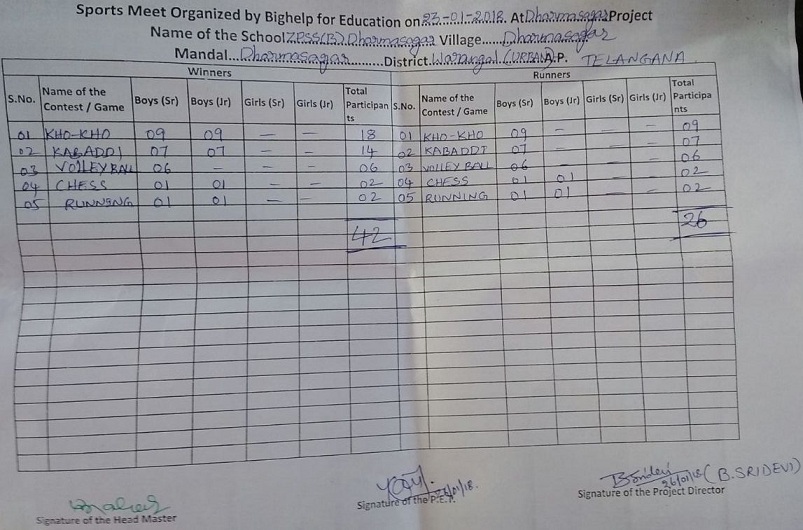 Sports Meet Organized by Bighelp for Education on 23-01-2018. At Dharmasagar Project
Name of the School ZPSS(B) Dharmasagar Village...... Dharmasagar
Mandal... Dharmasagar .......... District Warangal (URBAN) A.P. TELANGANA
Winners Runners
S.No. Name of the Contest / Game Boys (Sr) Boys (Jr) Girls (Sr) Girls (Jr) Total Participan ts S.No. Name of the Contest / Game Boys (Sr) Boys (Jr) Girls (Sr) Girls (Jr) Total Participa nts
01 KHO-KHO 09 09 — — 18 01 KHO-KHO 09 — — — 09
02 KABADDI 07 07 — — 14 02 KABADDI 07 — — — 07
03 VOLLEYBALL 06 — — — 06 03 VOLLEY BALL 06 — — — 06
04 CHESS 01 01 — — 02 04 CHESS 01 01 — — 02
05 RUNNING 01 01 — — 02 05 RUNNING 01 01 — — 02
42 26
26/01/18. 26/01/18 (B. SRIDEVI)
Signature of the Head Master Signature of the P.E.T. Signature of the Project Director